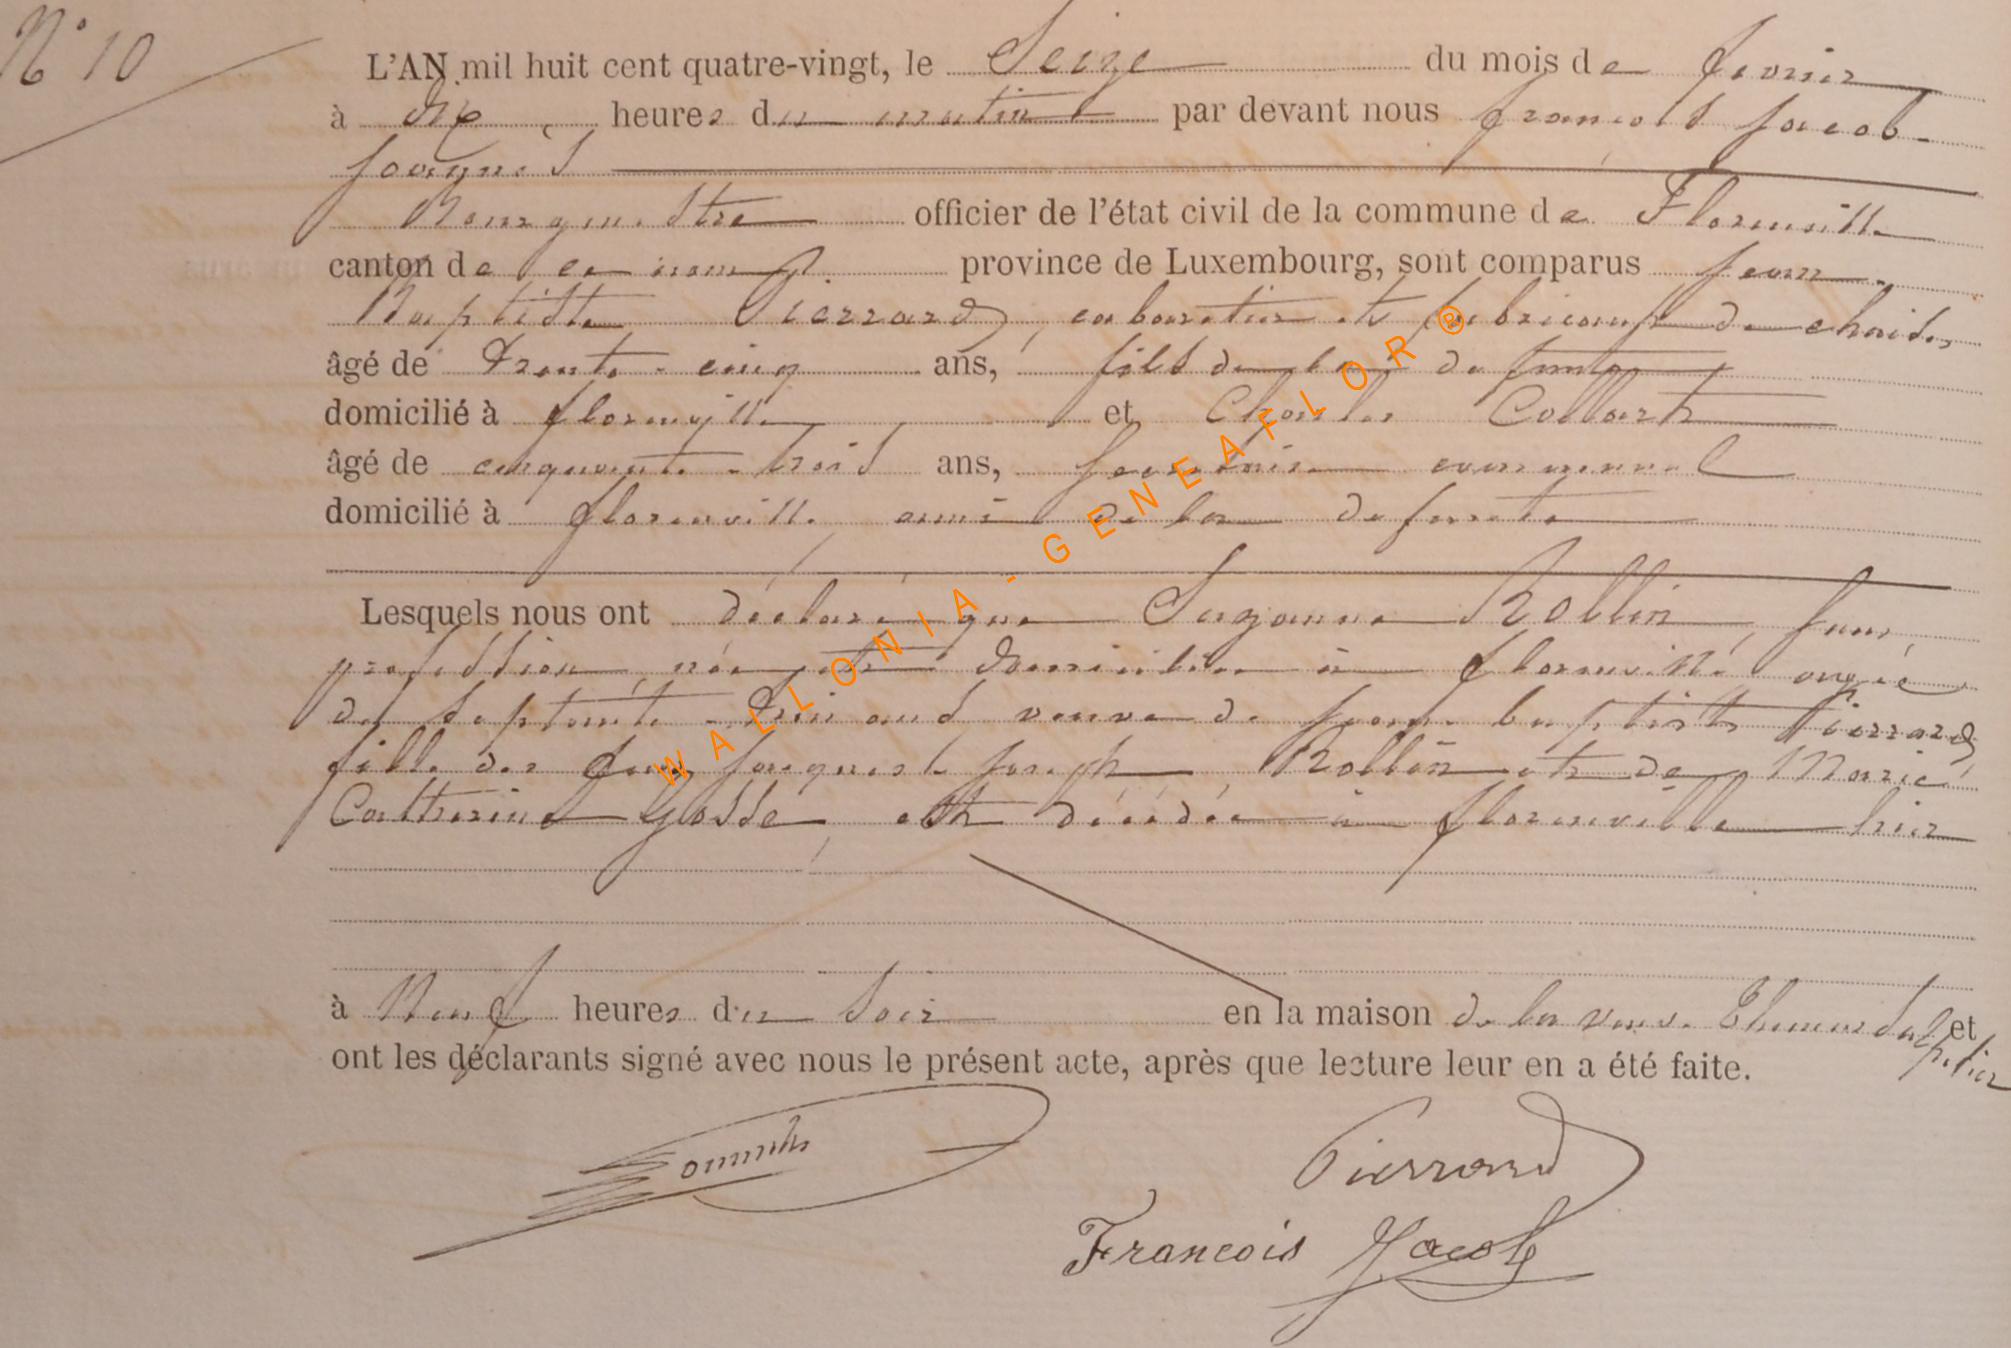 N° 10
L'AN mil huit cent quatre-vingt, le Seize du mois de fevrier
à dix heures du matin par devant nous françois Jacob
Jacques
Bourgmestre officier de l'état civil de la commune de Florenville
canton de ce nom province de Luxembourg, sont comparus jean
Baptiste Pierrard, cabaretier et fabricant de chaises
âgé de trente-cinq ans, fils de la défunte
domicilié à florenville et Charles Collart
âgé de cinquante-trois ans, secretaire communal
domicilié à florenville, ami de la défunte
Lesquels nous ont déclaré que Suzanne Rollin, sans
profession, née et domiciliée à florenville agée
de septante-trois ans, veuve de jean baptiste Pierrard,
fille des feus jacques joseph Rollin et de Marie
Catherine Gossé, est décédée à florenville hier
à Neuf heures du soir en la maison de la veuve et
ont les déclarants signé avec nous le présent acte, après que lecture leur en a été faite.
Pierrard
Francois Jacob
WALLONIA-GENEAFLOR®